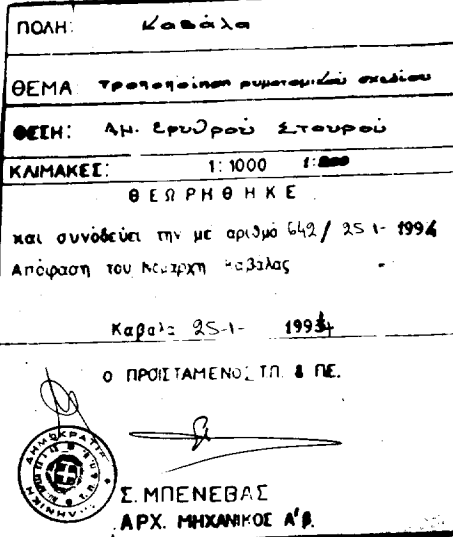 ΠΟΛΗ: Καβάλα
ΘΕΜΑ: Τροποποίηση ρυμοτομικού σχεδίου
ΘΕΣΗ: ΑΝ. Ερυθρού Σταυρού
ΚΛΙΜΑΚΕΣ: 1:1000
ΘΕΩΡΗΘΗΚΕ
και συνοδεύει την με αριθμό 642 / 25-1-1994
Απόφαση του Νομάρχη Καβάλας
Καβάλα 25-1- 1994
Ο ΠΡΟΙΣΤΑΜΕΝΟΣ Τ.Π. & ΠΕ.
Σ. ΜΠΕΝΕΒΑΣ
ΑΡΧ. ΜΗΧΑΝΙΚΟΣ Α'β.